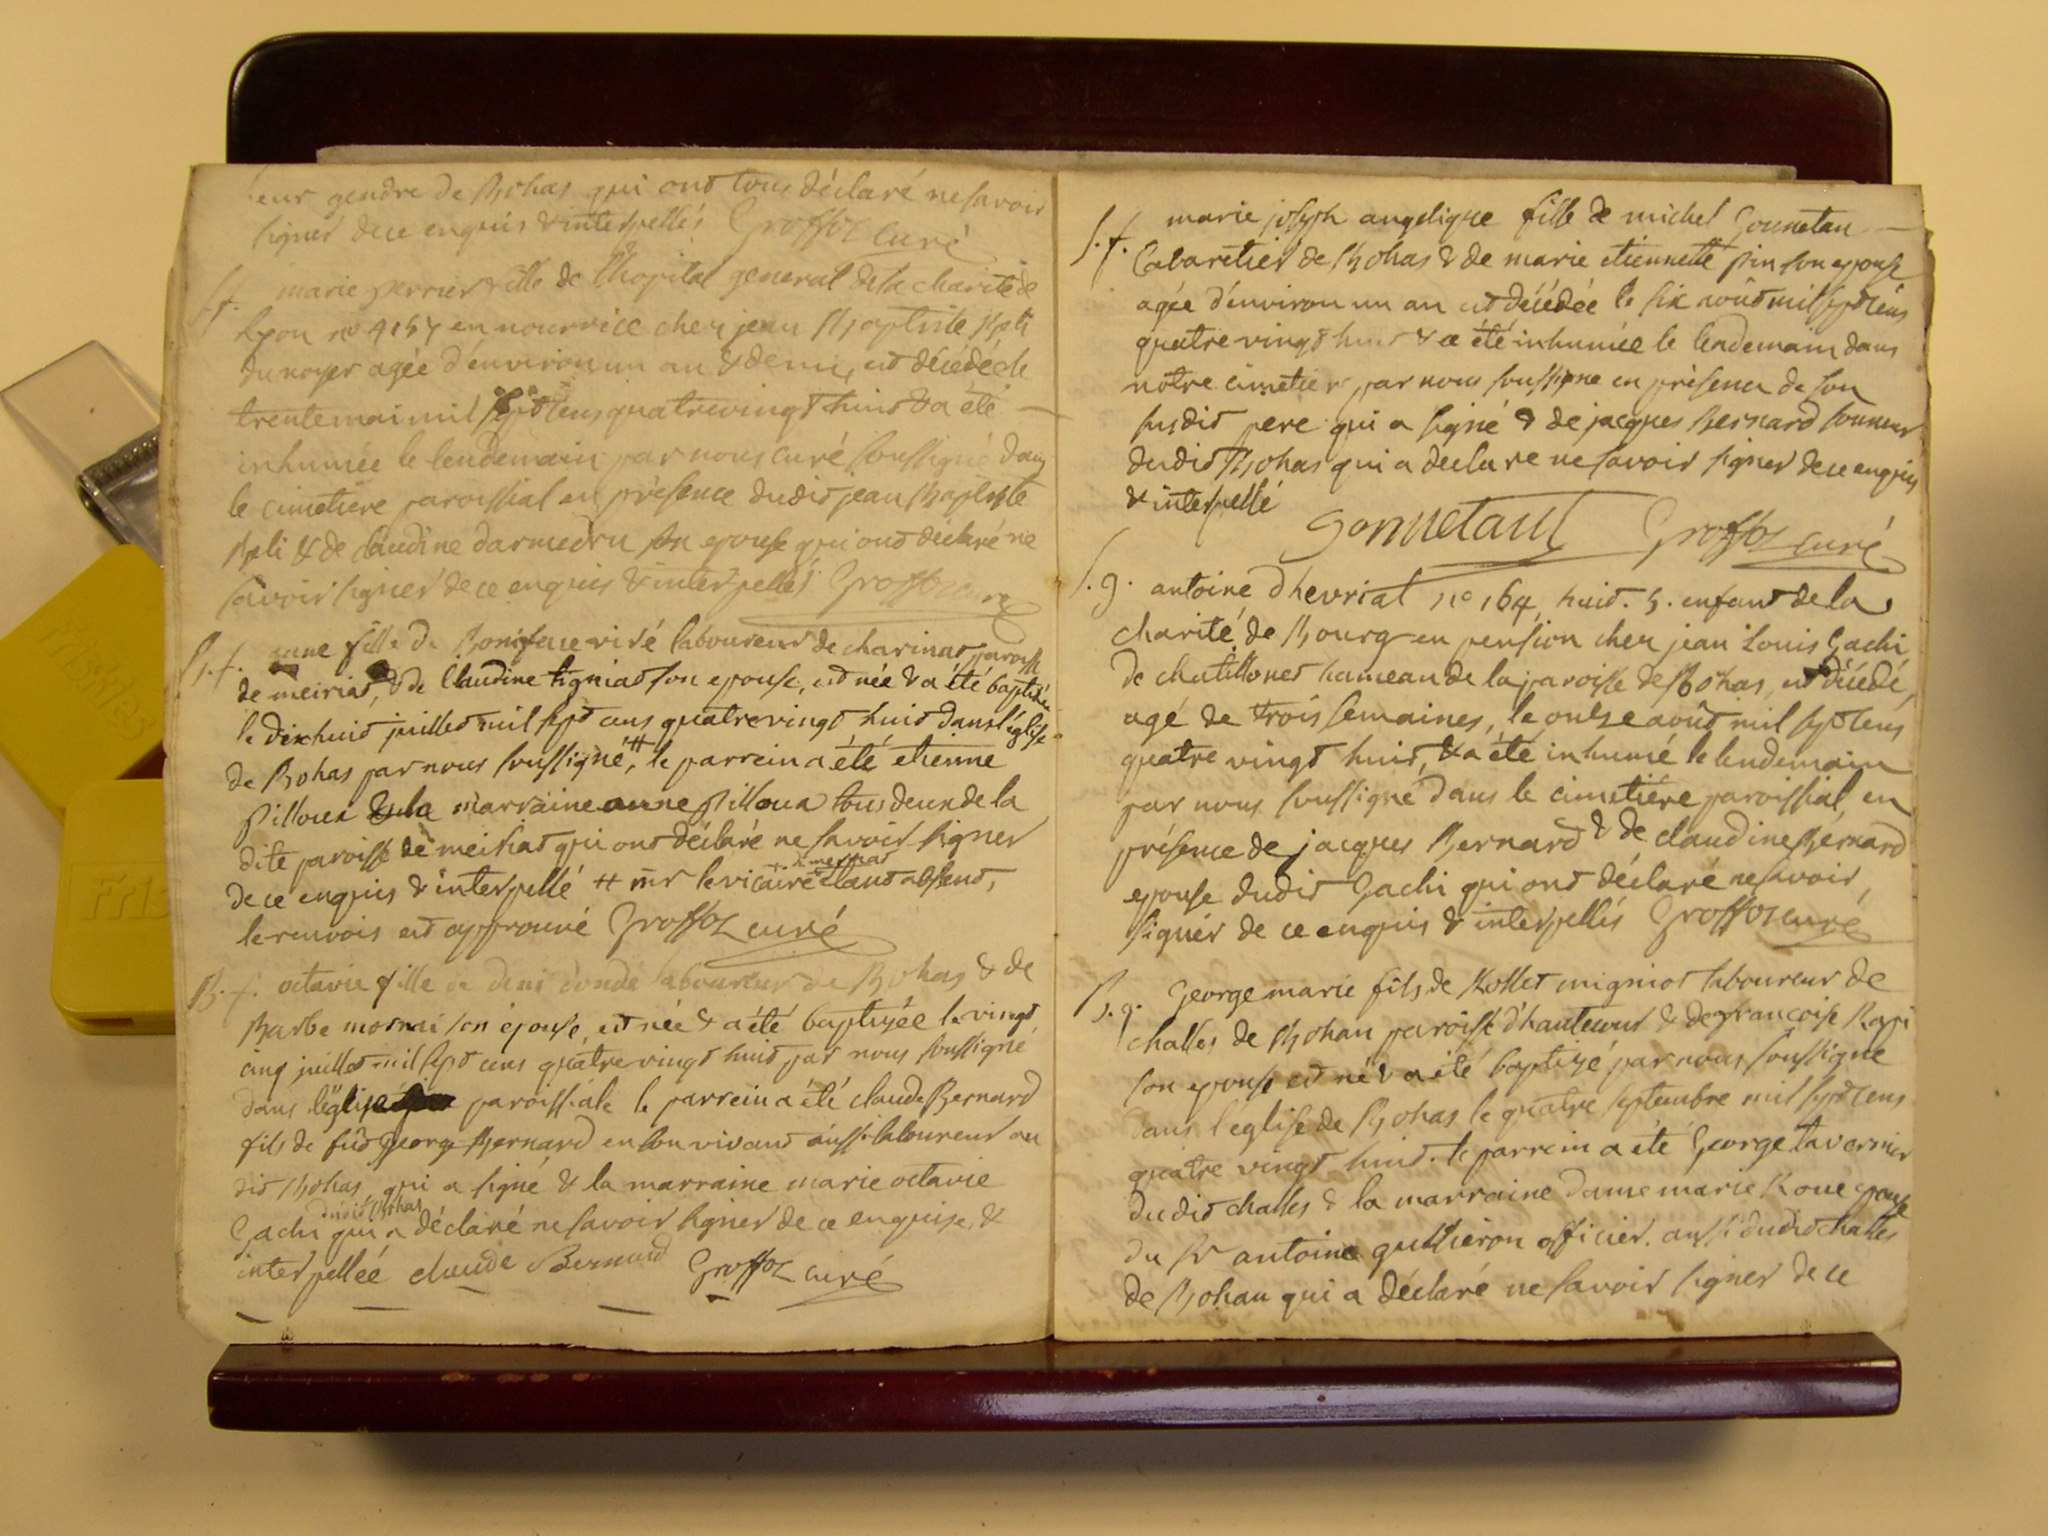 eur gendre de Bohas qui ont tous déclaré ne savoir
signer de ce enquis & interpellés Groffoz curé
S.f. marie perrier fille de l'hopital general de la charité de
Lyon no 4157 en nourrice cher jean Baptiste
du noyer agée d'environ un an & demi, est décédée le
trente mai mil sept cens quatrevingt huit & a été
inhumée le lendemain par nous curé soussigné dans
le cimetiere paroissial en présence dudit jean Baptiste
& de claudine darmedru son epouse qui ont déclaré ne
savoir signer de ce enquis & interpellés Groffoz curé
B.f. anne fille de Boniface viré laboureur de charinat paroisse
de meiriat, & de Claudine tigniat son epouse, est née & a été baptisée
le dix huit juillet mil sept cens quatrevingt huit dans l'église
de Bohas par nous soussigné, # le parrein a été etienne
Pilloux & la marraine anne Pilloux tous deux de la
dite paroisse de meiriat qui ont déclaré ne savoir signer
de ce enquis & interpellé # mr le vicaire de mermat étant absent,
le renvois est approuvé Groffoz curé
B.f. octavie fille de deni dondé laboureur de Bohas & de
Barbe mornai son epouse, est née & a été baptizée le vingt
cinq juillet mil sept cens quatre vingt huit par nous soussigné
dans l'église paroissiale le parrein a été claude Bernard
fils de fût George Bernard en son vivant aussi laboureur au
dit Bohas qui a signé & la marraine marie octavie
Gachi dudit Bohas qui a déclaré ne savoir signer de ce enquise &
interpellée claude Bernard Groffoz curé
S.f. marie joseph angelique fille de michel Gonnetan
Cabaretier de Bohas & de marie etiennette pin son epouse
agée d'environ un an est décédée le six août mil sept cens
quatre vingt huit & a été inhumée le lendemain dans
notre cimetier par nous soussigné en présence de son
susdit pere qui a signé & de jacques Bernard sonneur
dudit Bohas qui a déclaré ne savoir signer de ce enquis
& interpellé Gonnetant Groffoz curé
S.g. antoine dhevrial no 164, huit. 5. enfant de la
charité de Bourg en pension cher jean Louis Gachi
de chatillonet hameau de la paroisse de Bohas, est décédé,
agé de trois semaines, le onze août mil sept cens
quatre vingt huit, & a été inhumé le lendemain
par nous soussigné dans le cimetière paroissial en
présence de jacques Bernard & de claudine Bernard
epouse dudit Gachi qui ont déclaré ne savoir
signer de ce enquis & interpellés Groffoz curé
B.g. George marie fils de Kollet migniot laboureur de
challes de Bohan paroisse d'hautecour & de francoise Rapi
son epouse est né & a été baptizé par nous soussigné
dans l'église de Bohas le quatre septembre mil sept cens
quatre vingt huit. le parrein a été George tavernier
dudit challes & la marraine dame marie Roue epouse
du Sr antoine guillieron officier aussi dudit challes
de Bohan qui a déclaré ne savoir signer de ce
Friskies
Fris